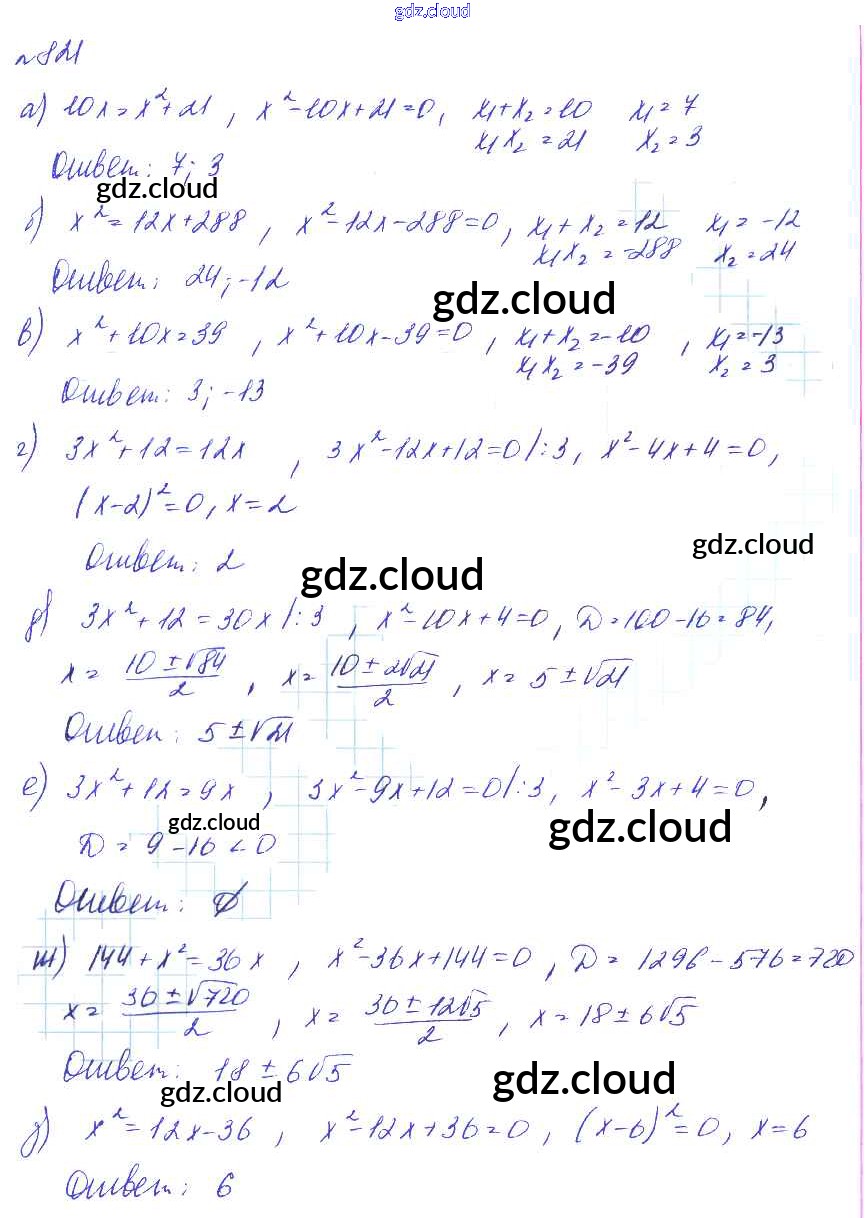 gdz.cloud
№821
а) 10x = x²+21, x²-10x+21=0, x₁+x₂=10 x₁=7
x₁x₂=21 x₂=3
Ответ: 7; 3
gdz.cloud
б) x²=12x+288, x²-12x-288=0, x₁+x₂=12 x₁=-12
x₁x₂=-288 x₂=24
Ответ: 24; -12
gdz.cloud
в) x²+10x=39, x²+10x-39=0, x₁+x₂=-10, x₁=-13
x₁x₂=-39 x₂=3
Ответ: 3; -13
г) 3x²+12=12x, 3x²-12x+12=0 /:3, x²-4x+4=0,
(x-2)²=0, x=2
gdz.cloud
Ответ: 2
gdz.cloud
д) 3x²+12=30x /:3, x²-10x+4=0, D=100-16=84,
x = (10±√84)/2, x = (10±2√21)/2, x = 5±√21
Ответ: 5±√21
е) 3x²+12=9x, 3x²-9x+12=0 /:3, x²-3x+4=0,
gdz.cloud gdz.cloud
D = 9-16 < 0
Ответ: ∅
ж) 144+x²=36x, x²-36x+144=0, D=1296-576=720
x = (36±√720)/2, x = (36±12√5)/2, x = 18±6√5
Ответ: 18±6√5
gdz.cloud gdz.cloud
з) x²=12x-36, x²-12x+36=0, (x-6)²=0, x=6
Ответ: 6